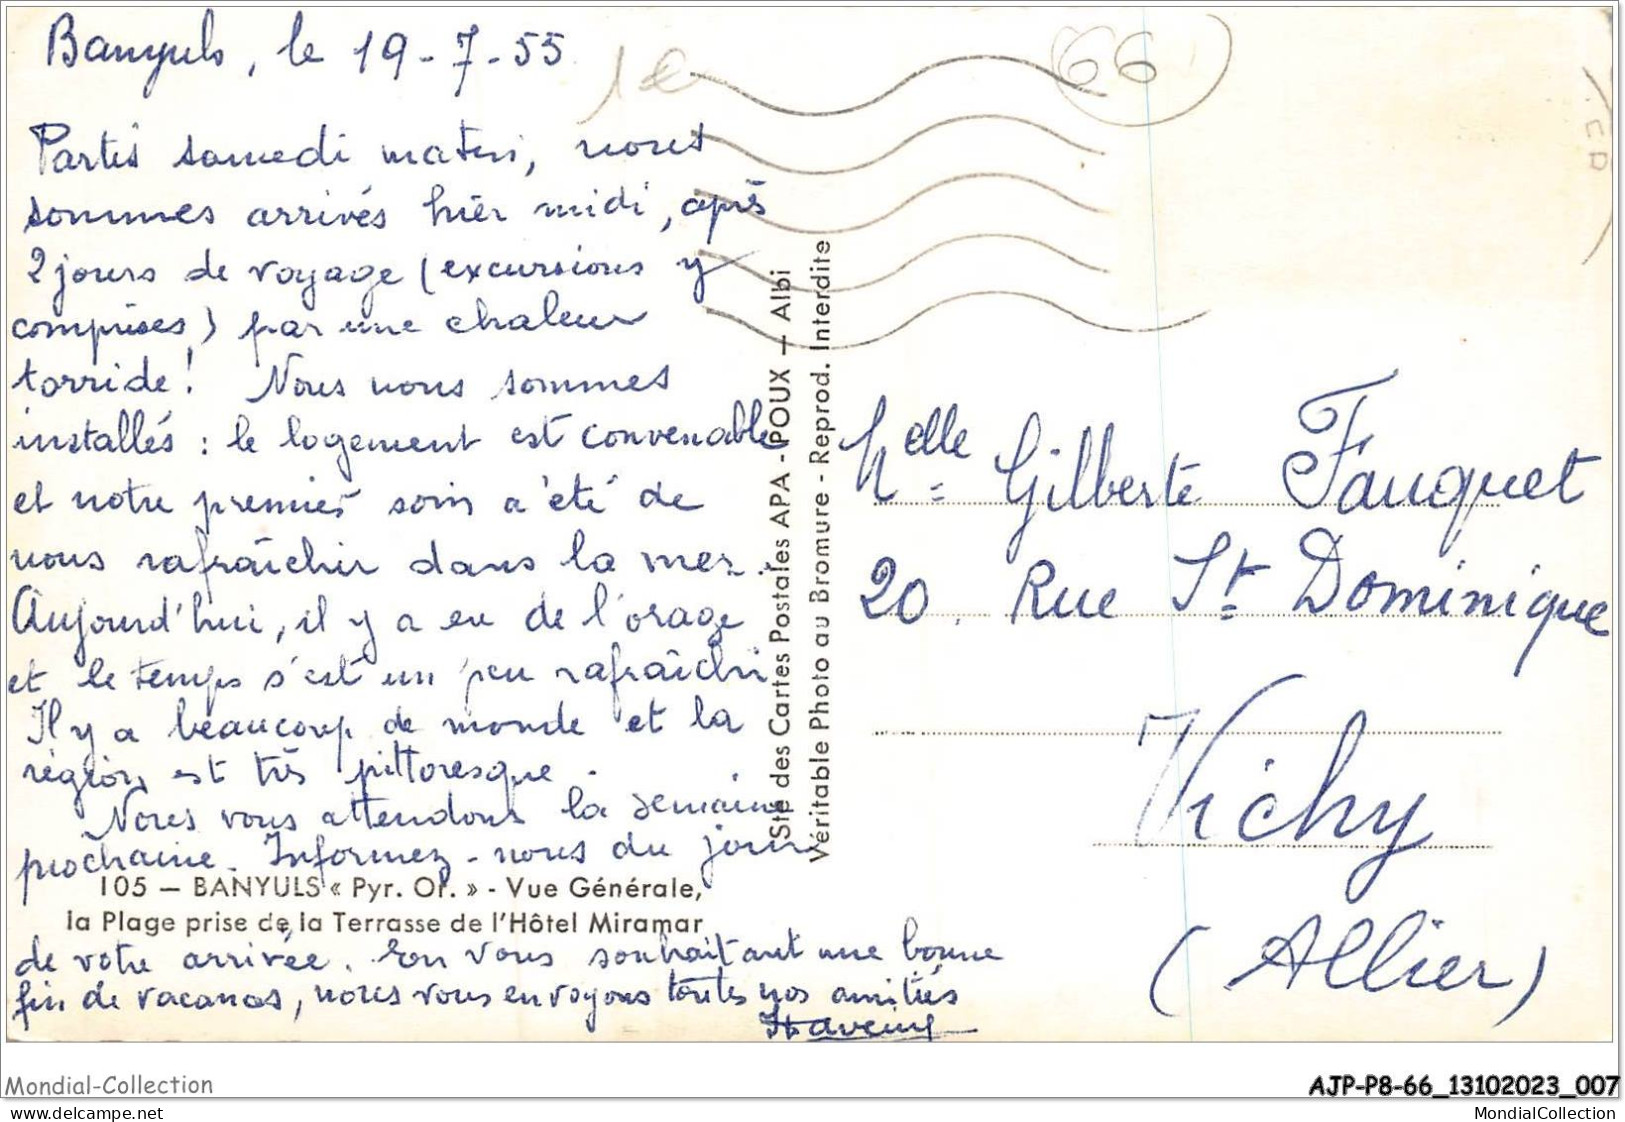 Banyuls, le 19-7-55
Partis samedi matin, nous
sommes arrivés hier midi, après
2 jours de voyage (excursions y
comprises) par une chaleur
torride! Nous nous sommes
installés : le logement est convenable
et notre premier soin a été de
nous rafraîchir dans la mer.
Aujourd'hui, il y a eu de l'orage
et le temps s'est un peu rafraîchi
Il y a beaucoup de monde et la
région est très pittoresque.
Nous vous attendons la semaine
prochaine. Informez-nous du jour
105 — BANYULS « Pyr. Or. » - Vue Générale,
la Plage prise de la Terrasse de l'Hôtel Miramar
de votre arrivée. En vous souhaitant une bonne
fin de vacances, nous vous envoyons toutes nos amitiés
Sté des Cartes Postales APA - POUX — Albi
Véritable Photo au Bromure - Reprod. Interdite
1€
66
Melle Gilberte Fauquet
20, Rue St Dominique
Vichy
(Allier)
Mondial-Collection
AJP-P8-66_13102023_007
www.delcampe.net
MondialCollection